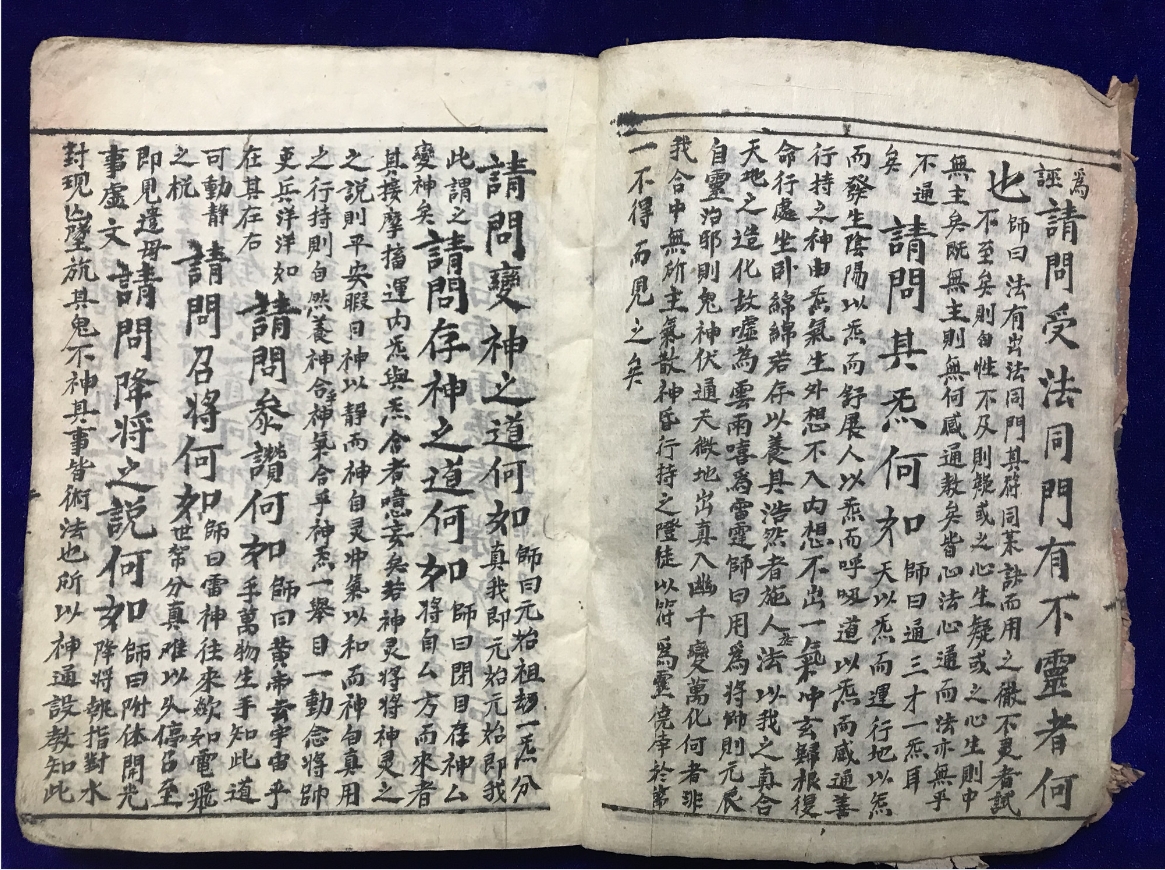 為誣請問受法同門有不靈者何
也師曰法有出法同門其符同某訣而用之徹不更者試
不至矣則自性不及則疑或之心生疑或之心生則中
無主矣既無主則無何感通教矣皆心法心通而法亦無乎
不通矣請問其炁何如師曰通三才一炁耳天以炁而運行地以炁
而發生陰陽以炁而舒展人以炁而呼吸道以炁而感通善
行持之种由炁氣生外想不入内想不出一氣冲玄歸根復
命行處坐卧綿綿若存以養其浩然者施人法以我之真合
天地之造化故噓為雲雨嘻為雷霆師曰用為將帥則元辰
自靈治邪則鬼神伏通天徹地出真入幽千變萬化何者非
我合中無所主氣散神昏行持之際徒以符為靈僥倖於
一不得而見之矣
請問變神之道何如師曰元始祖刧一炁分真我即元始元始即我
此謂之變神矣請問存神之道何如師曰閉目存神么將自么方而來者
其按摩搐運内炁與炁合者噫妄矣若神灵將將神灵之
之説則平安暇日神以靜而神自灵帅氣以和而神自真用
之行持則自然養神合神氣合乎神炁一舉目一動念將帥
吏兵洋洋如在其在右請問參讚何如師曰黄帝云宇宙乎手萬物生乎知此道
可動靜之梡請問召將何如師曰雷神往來欻如電飛世帑分真难以久停召至
即見遣毋請問降將之説何如師曰附体開光降將跳指對水
事虚文
對現凶墜旒其鬼不神其事皆術法也所以神通設教知此